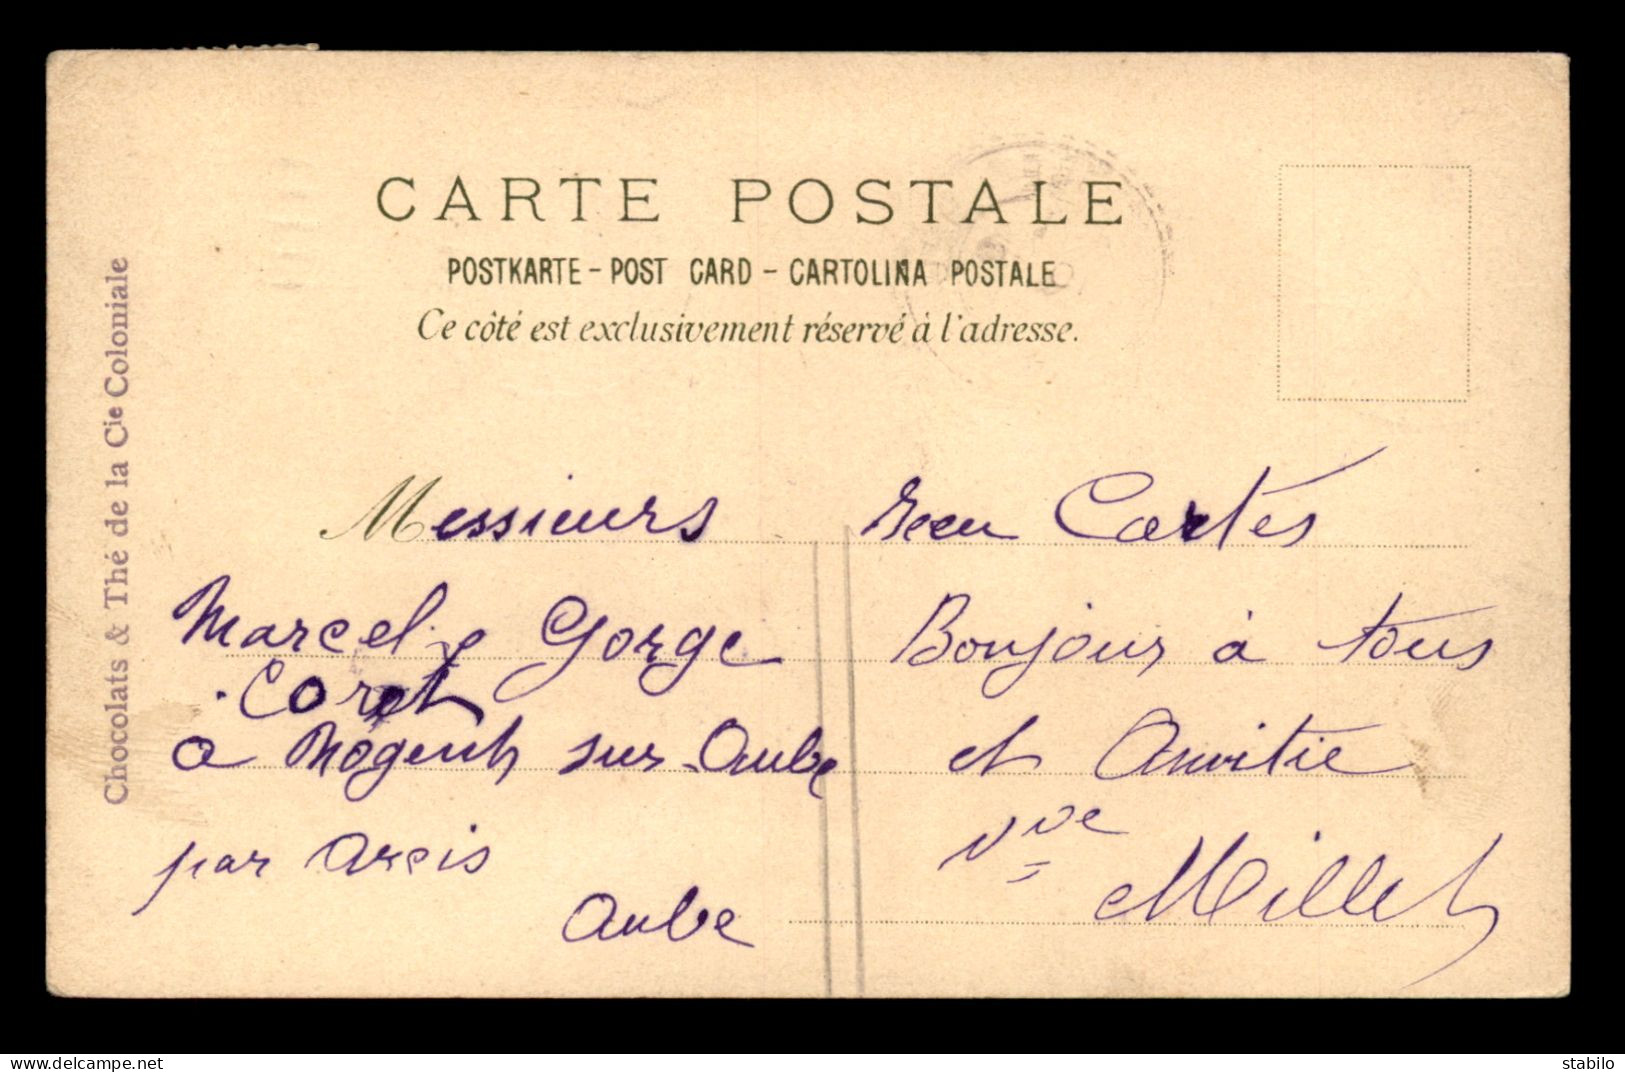 CARTE POSTALE
POSTKARTE - POST CARD - CARTOLINA POSTALE
Ce côté est exclusivement réservé à l'adresse.
Chocolats & Thé de la Cie Coloniale
Messieurs
Marcel e Gorge
Coret
a Nogent sur Aube
par Arcis
Aube
recu Cartes
Bonjour à tous
et Amitie
Vve
Millet
delcampe.net
stabilo